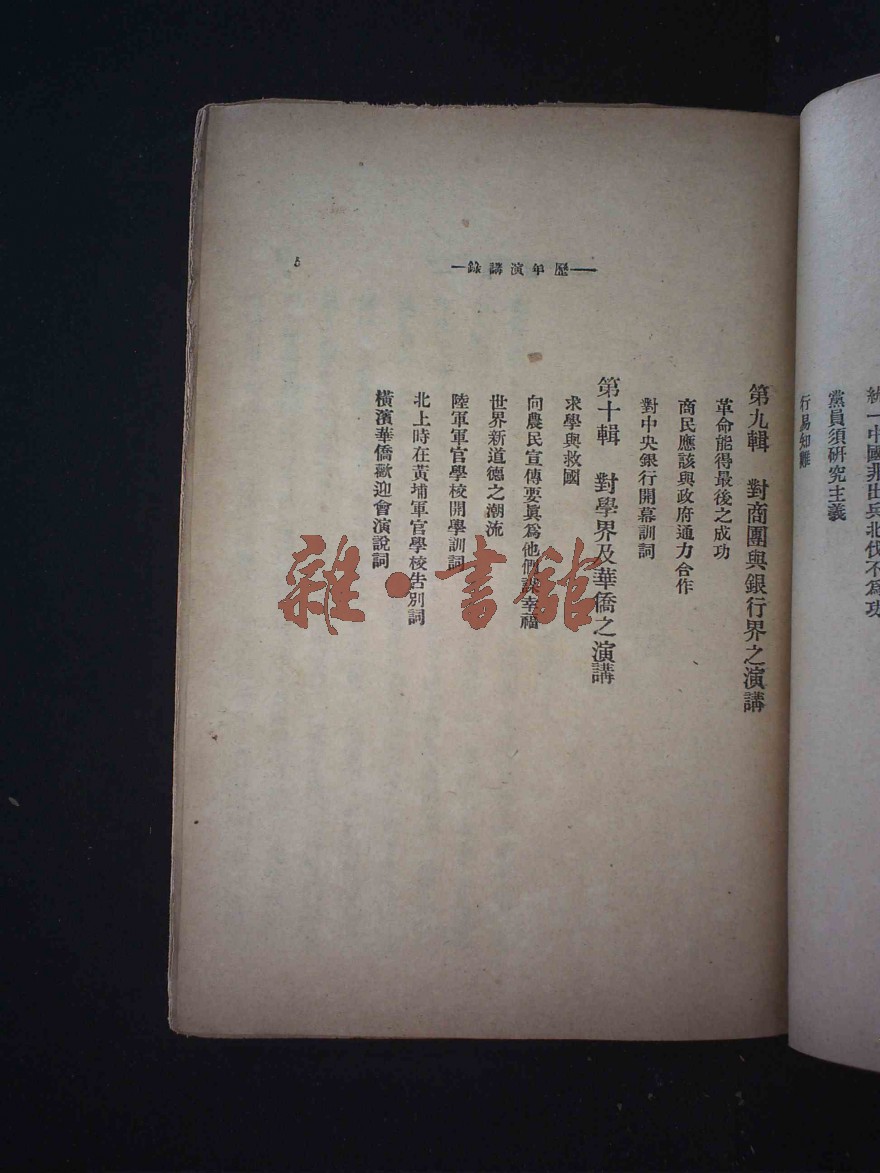 統一中國非出兵北伐不為功
黨員須研究主義
行易知難
—歷年演講錄—
5
第九輯　對商團與銀行界之演講
革命能得最後之成功
商民應該與政府通力合作
對中央銀行開幕訓詞
第十輯　對學界及華僑之演講
求學與救國
向農民宣傳要眞為他們謀幸福
世界新道德之潮流
陸軍軍官學校開學訓詞
北上時在黃埔軍官學校告別詞
橫濱華僑歡迎會演說詞
雜·書館